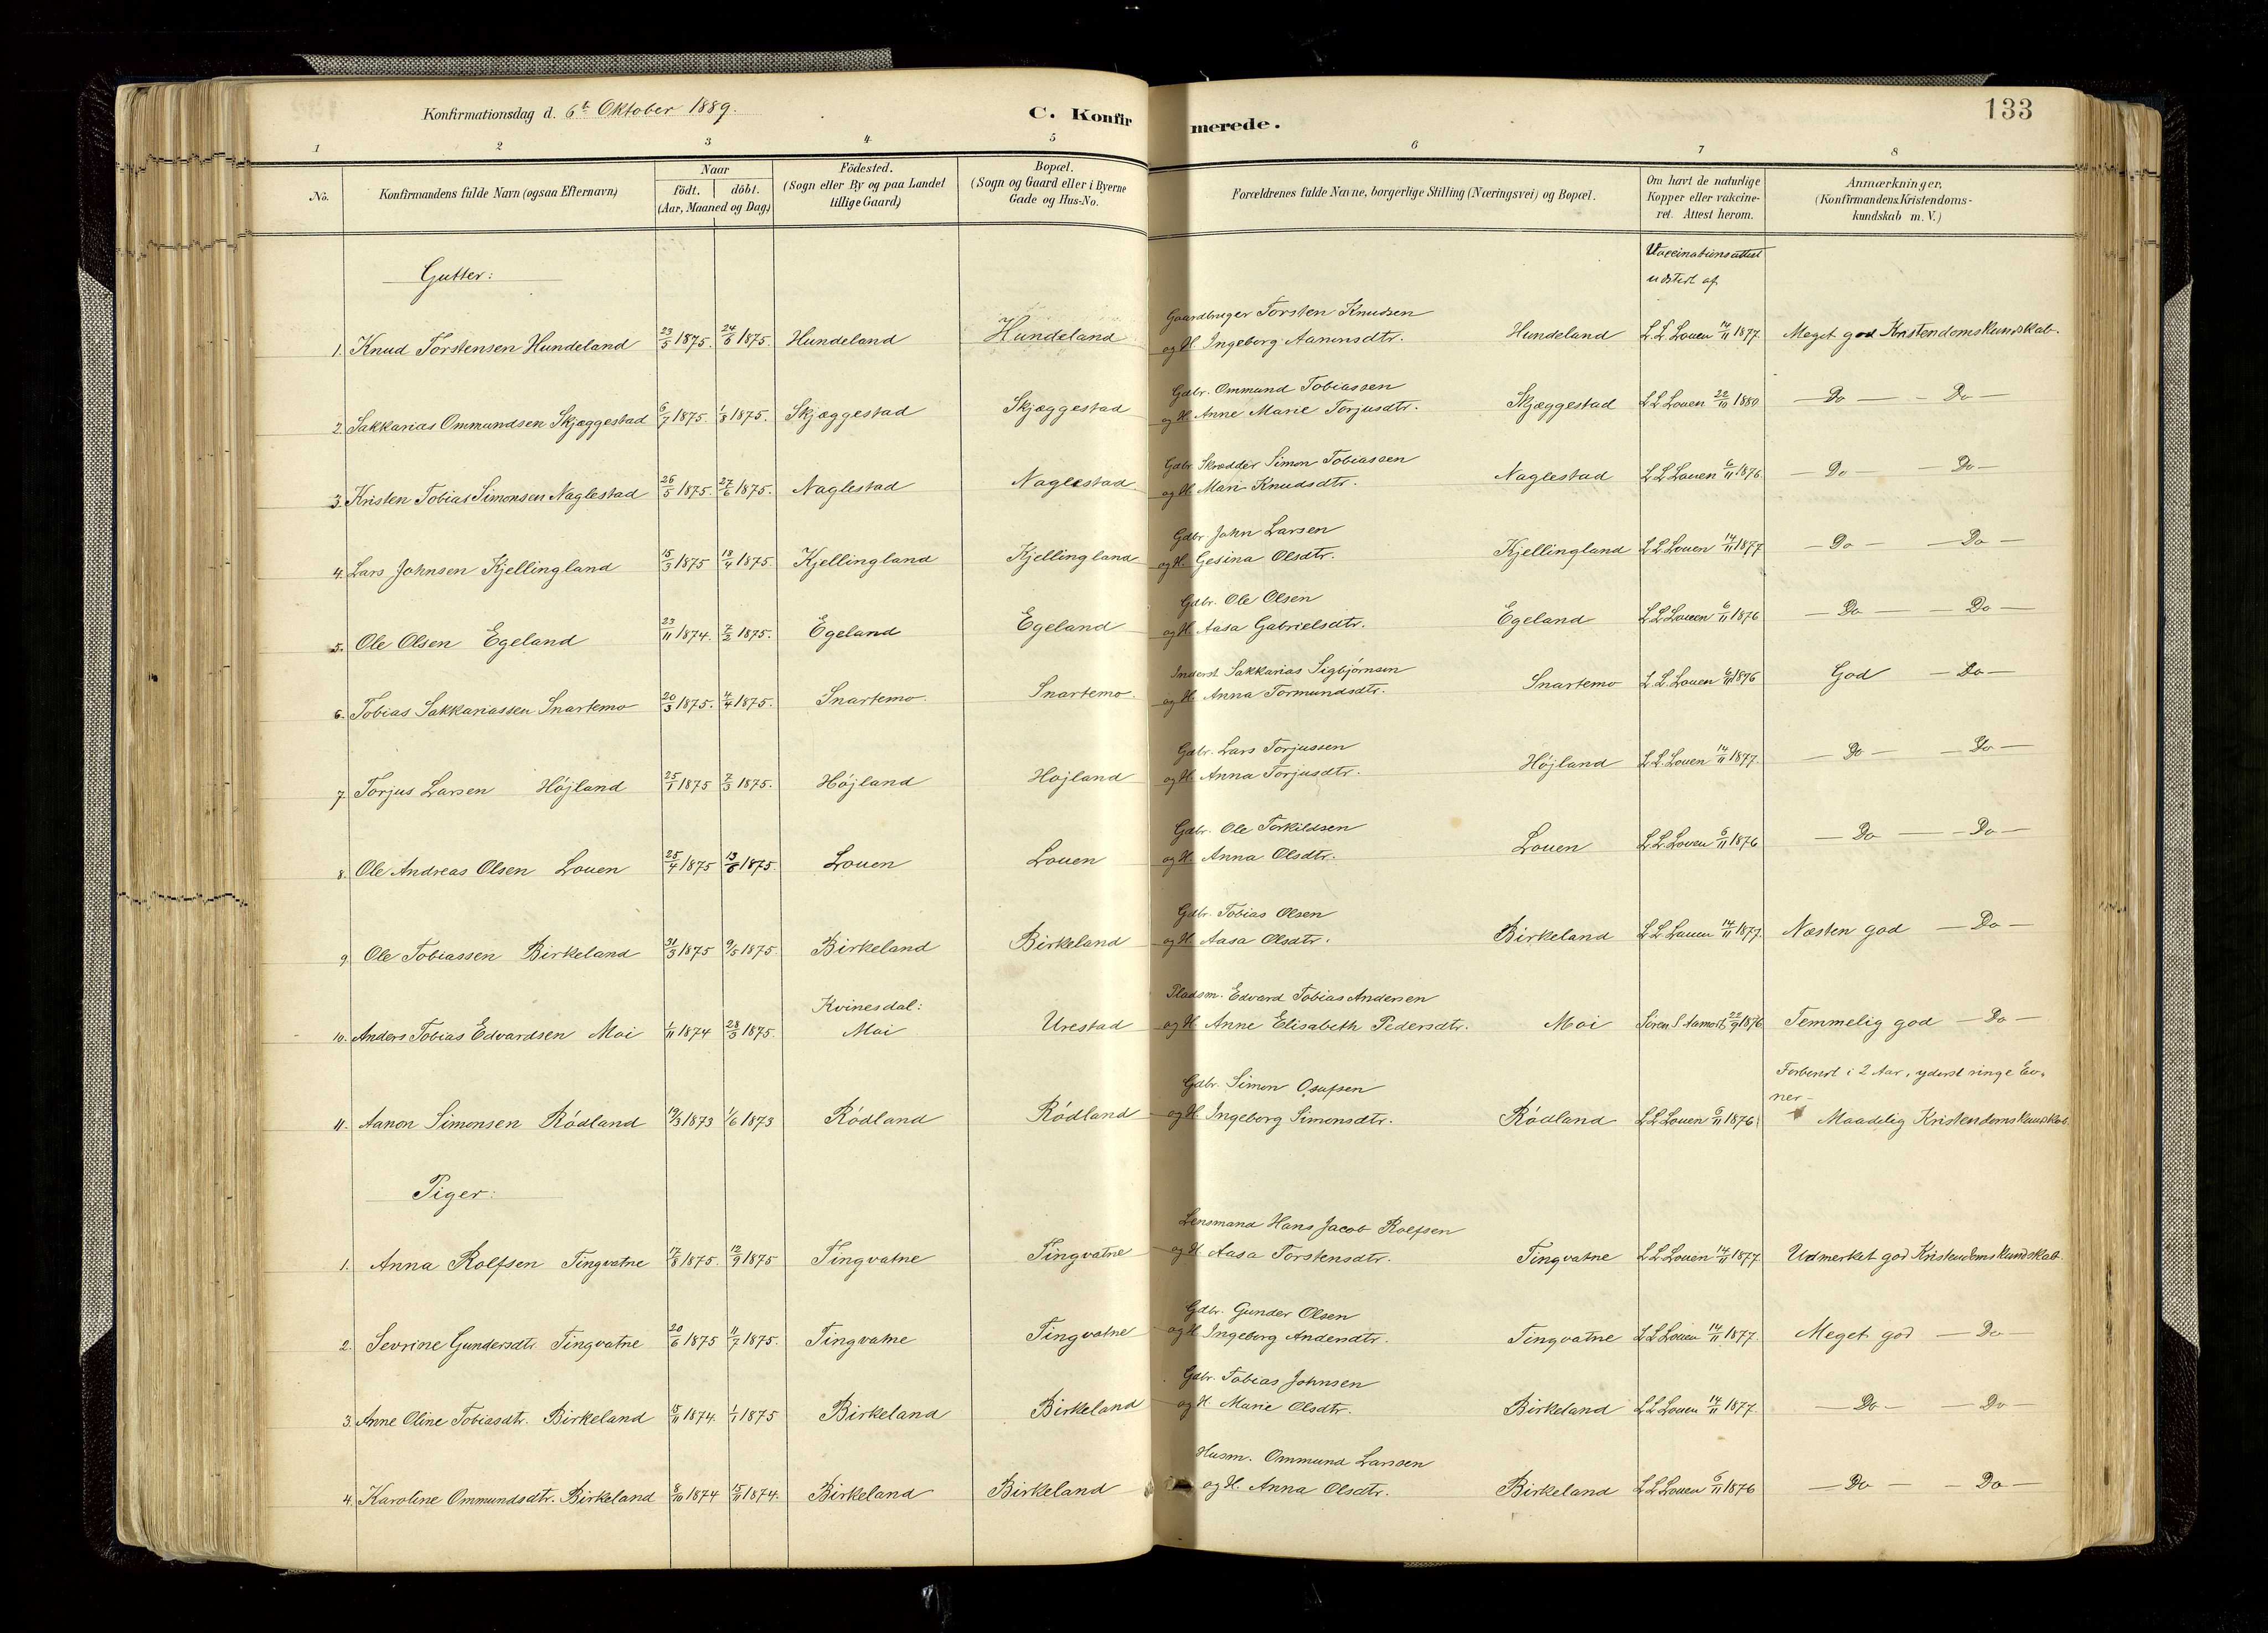 Konfirmationsdag d. 6t Oktober 1889.
C. Konfirmerede.
133
1 2 3 4 5 6 7 8
No.
Konfirmandens fulde Navn (ogsaa Efternavn)
Naar
födt. döbt.
(Aar, Maaned og Dag)
Födested.
(Sogn eller By og paa Landet
tillige Gaard)
Bopæl.
(Sogn og Gaard eller i Byerne
Gade og Hus-No.
Forældrenes fulde Navne, borgerlige Stilling (Næringsvei) og Bopæl.
Om havt de naturlige
Kopper eller vakcine-
ret. Attest herom.
Anmærkninger,
(Konfirmandens Kristendoms-
kundskab m. V.)
Vaccinationsattest
udstedt af
Gutter:
Gaardbruger Torsten Knudsen
1. Knud Torstensen Hundeland 23/5 1875. 24/6 1875. Hundeland Hundeland og H. Ingeborg Aanonsdtr. Hundeland L.L. Louen 14/11 1877. Meget god Kristendomskundskab.
Gdbr. Ommund Tobiassen
2. Sakkarias Ommundsen Skjæggestad 6/7 1875. 1/8 1875. Skjæggestad Skjæggestad og H. Anne Marie Torjusdtr. Skjæggestad L L Louen 22/10 1880 — Do — — Do —
Gdbr. Skrædder Simon Tobiassen
3. Kristen Tobias Simonsen Naglestad 26/5 1875. 27/6 1875. Naglestad Naglestad og H. Mari Knudsdtr. Naglestad L L Louen 6/11 1876 — Do — — Do —
Gdbr John Larsen
4. Lars Johnsen Kjellingland 15/3 1875 18/4 1875. Kjellingland Kjellingland og H. Gesina Olsdtr. Kjellingland L L Louen 14/11 1877 — Do — — Do —
Gdbr. Ole Olsen
5. Ole Olsen Egeland 23/11 1874. 7/2 1875. Egeland Egeland og H. Aasa Gabrielsdtr. Egeland L L Louen 6/11 1876 — Do — — Do —
Inderst Sakkarias Sigbjørnsen
6. Tobias Sakkariassen Snartemo 20/3 1875. 4/4 1875. Snartemo. Snartemo. og H. Anna Tormundsdtr. Snartemo L. L. Louen 6/11 1876 God — Do —
Gdbr. Lars Torjussen
7. Torjus Larsen Höjland 25/1 1875 7/3 1875. Höjland Höjland og H. Anna Torjusdtr. Höjland L L. Louen 14/11 1877. — Do — — Do —
Gdbr. Ole Torkildsen
8. Ole Andreas Olsen Louen 25/4 1875 13/6 1875. Louen Louen og H. Anna Olsdtr. Louen L L Louen 6/11 1876 — Do — — Do —
Gdbr. Tobias Olsen
9. Ole Tobiassen Birkeland 31/3 1875 9/5 1875. Birkeland Birkeland og H. Aasa Olsdtr. Birkeland L L Louen 14/11 1877. Næsten god — Do —
Kvinesdal: Pladsm. Edvard Tobias Andersen
10. Anders Tobias Edvardsen Moi 1/11 1874 28/3 1875. Moi Urestad og H. Anne Elisabeth Pedersdtr. Moi Sören S. Aamodt 22/9 1876 Temmelig god — Do —
Gdbr. Simon Osufsen Forberedt i 2 Aar, yderst ringe Ev-
ner-
11. Aanon Simonsen Rödland 19/3 1873 1/6 1873 Rödland Rödland og H. Ingeborg Simonsdtr. Rödland L L Louen 6/11 1876. Maadelig Kristendomskundskab.
Piger:
Lensmand Hans Jacob Rolfsen
1. Anna Rolfsen Tingvatne 17/8 1875. 12/9 1875 Tingvatne Tingvatne og H. Aasa Torstensdtr. Tingvatne L L Louen 14/11 1877 Udmerket god Kristendomskundskab.
Gdbr. Gunder Olsen
2. Sevrine Gundersdtr. Tingvatne 20/6 1875 11/7 1875. Tingvatne Tingvatne og H. Ingeborg Andersdtr. Tingvatne L L Louen 14/11 1877. Meget god — Do —
Gdbr. Tobias Johnsen
3. Anne Oline Tobiasdtr. Birkeland 15/11 1874. 1/1 1875 Birkeland Birkeland og H. Marie Olsdtr. Birkeland L L Louen 14/11 1877. — Do — — Do —
Husm. Ommund Larssen
4. Karoline Ommundsdtr. Birkeland 8/10 1874 15/11 1874. Birkeland Birkeland og H. Anna Olsdtr. Birkeland L L Louen 6/11 1876 — Do — — Do —